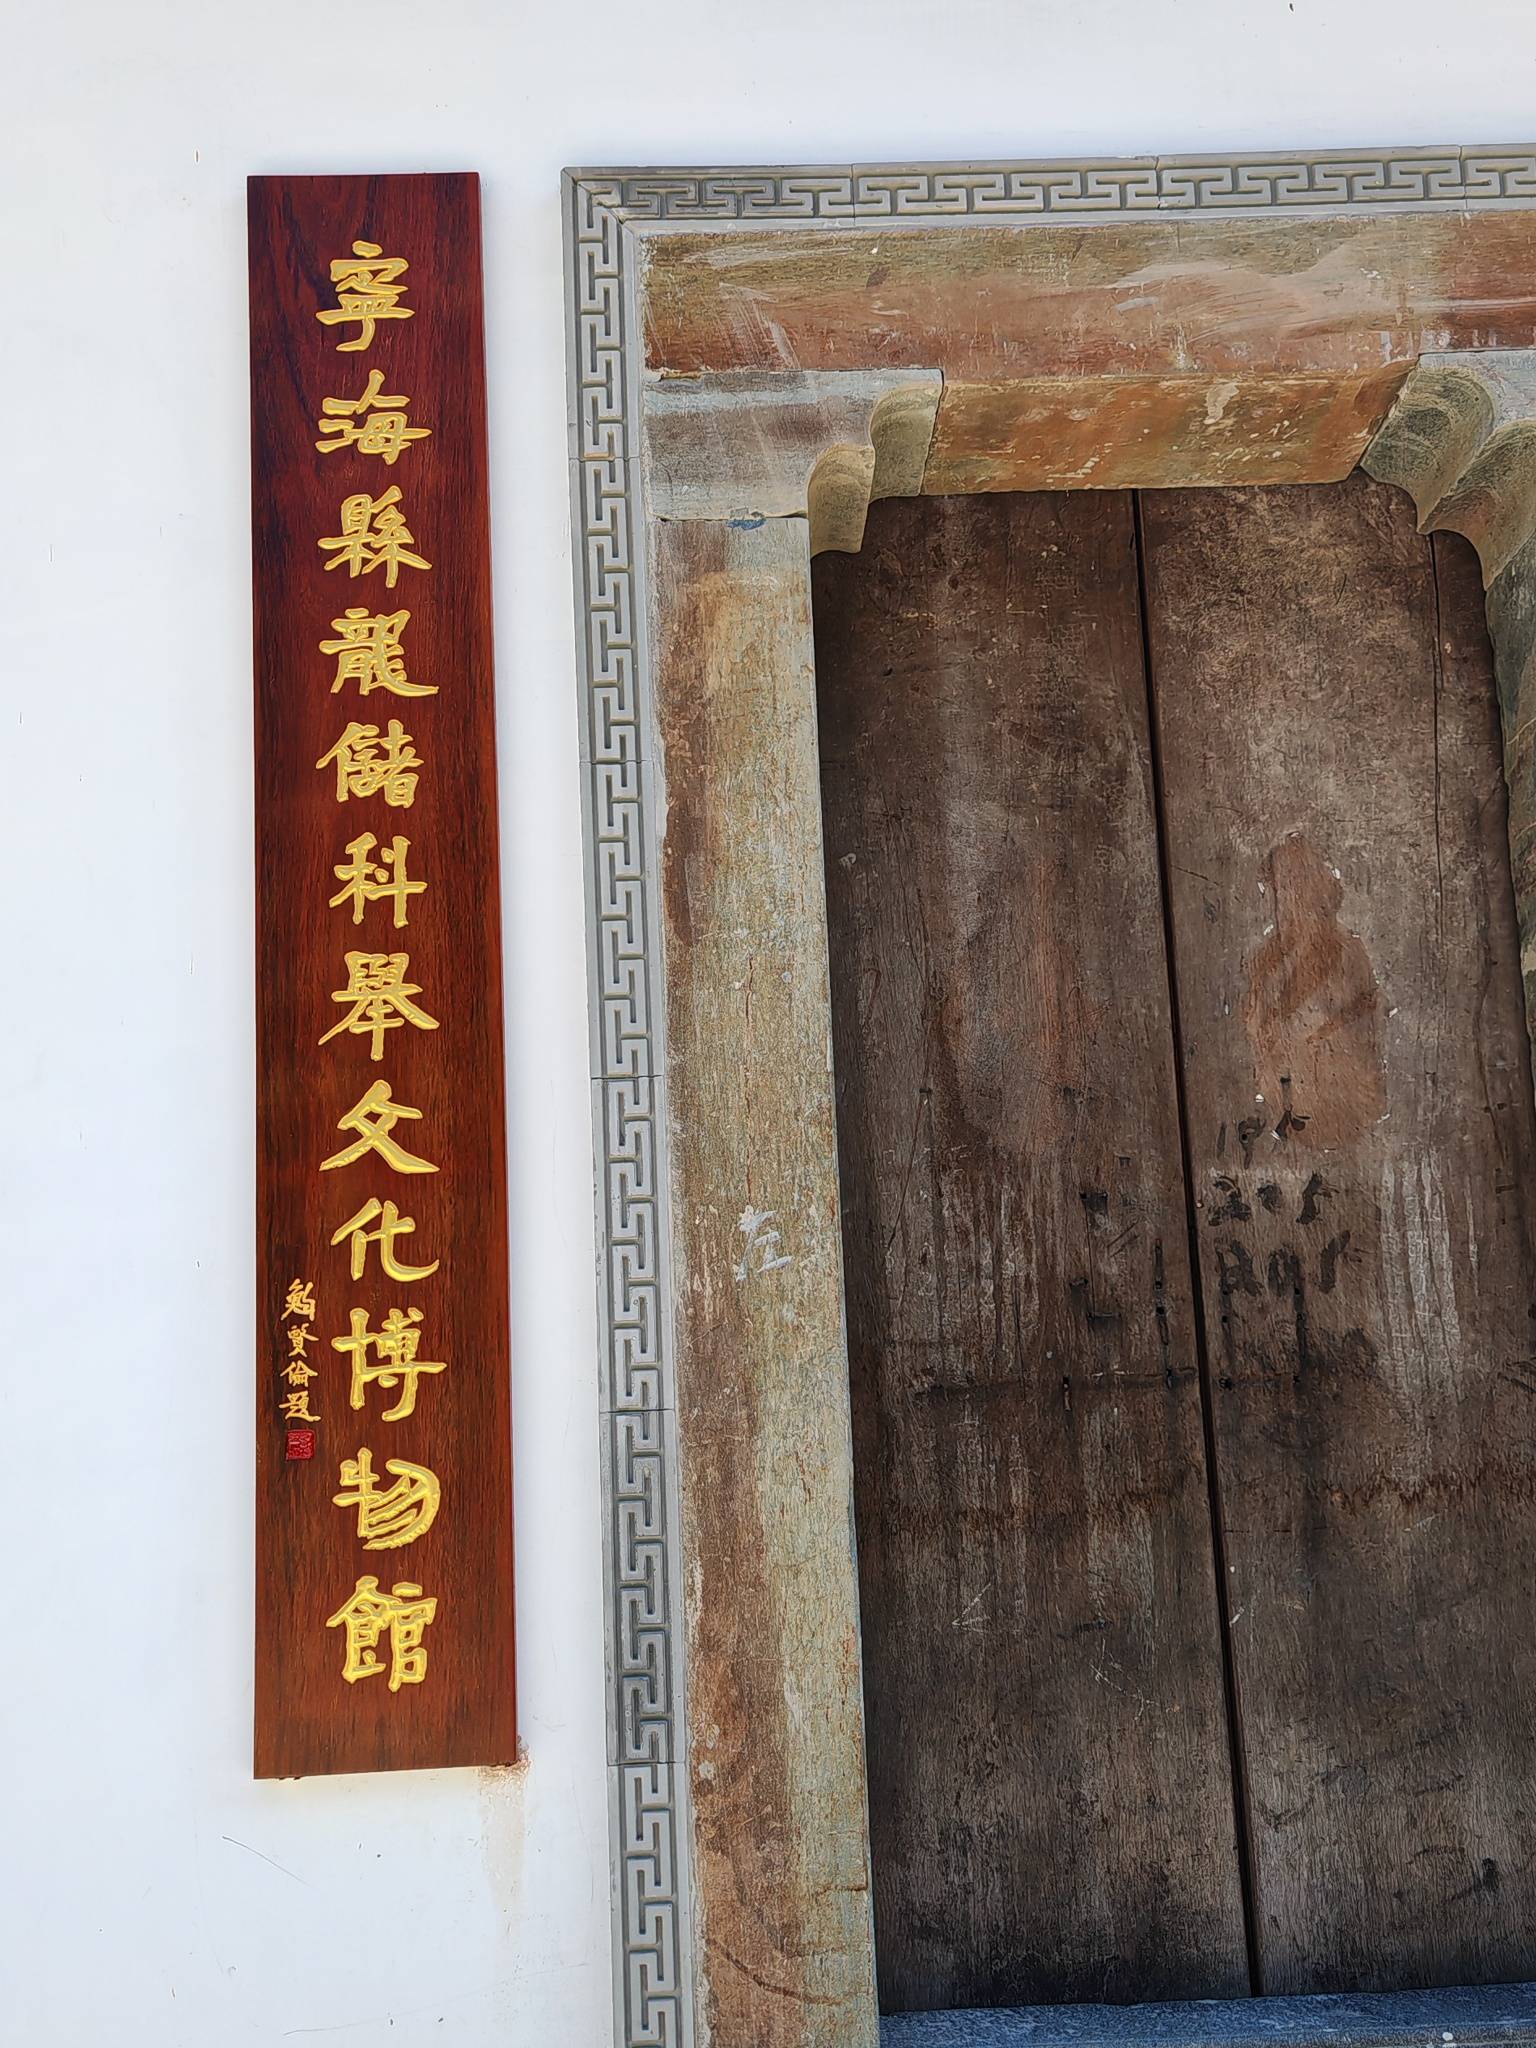 寧海縣龍儲科舉文化博物館
鮑賢倫題
左